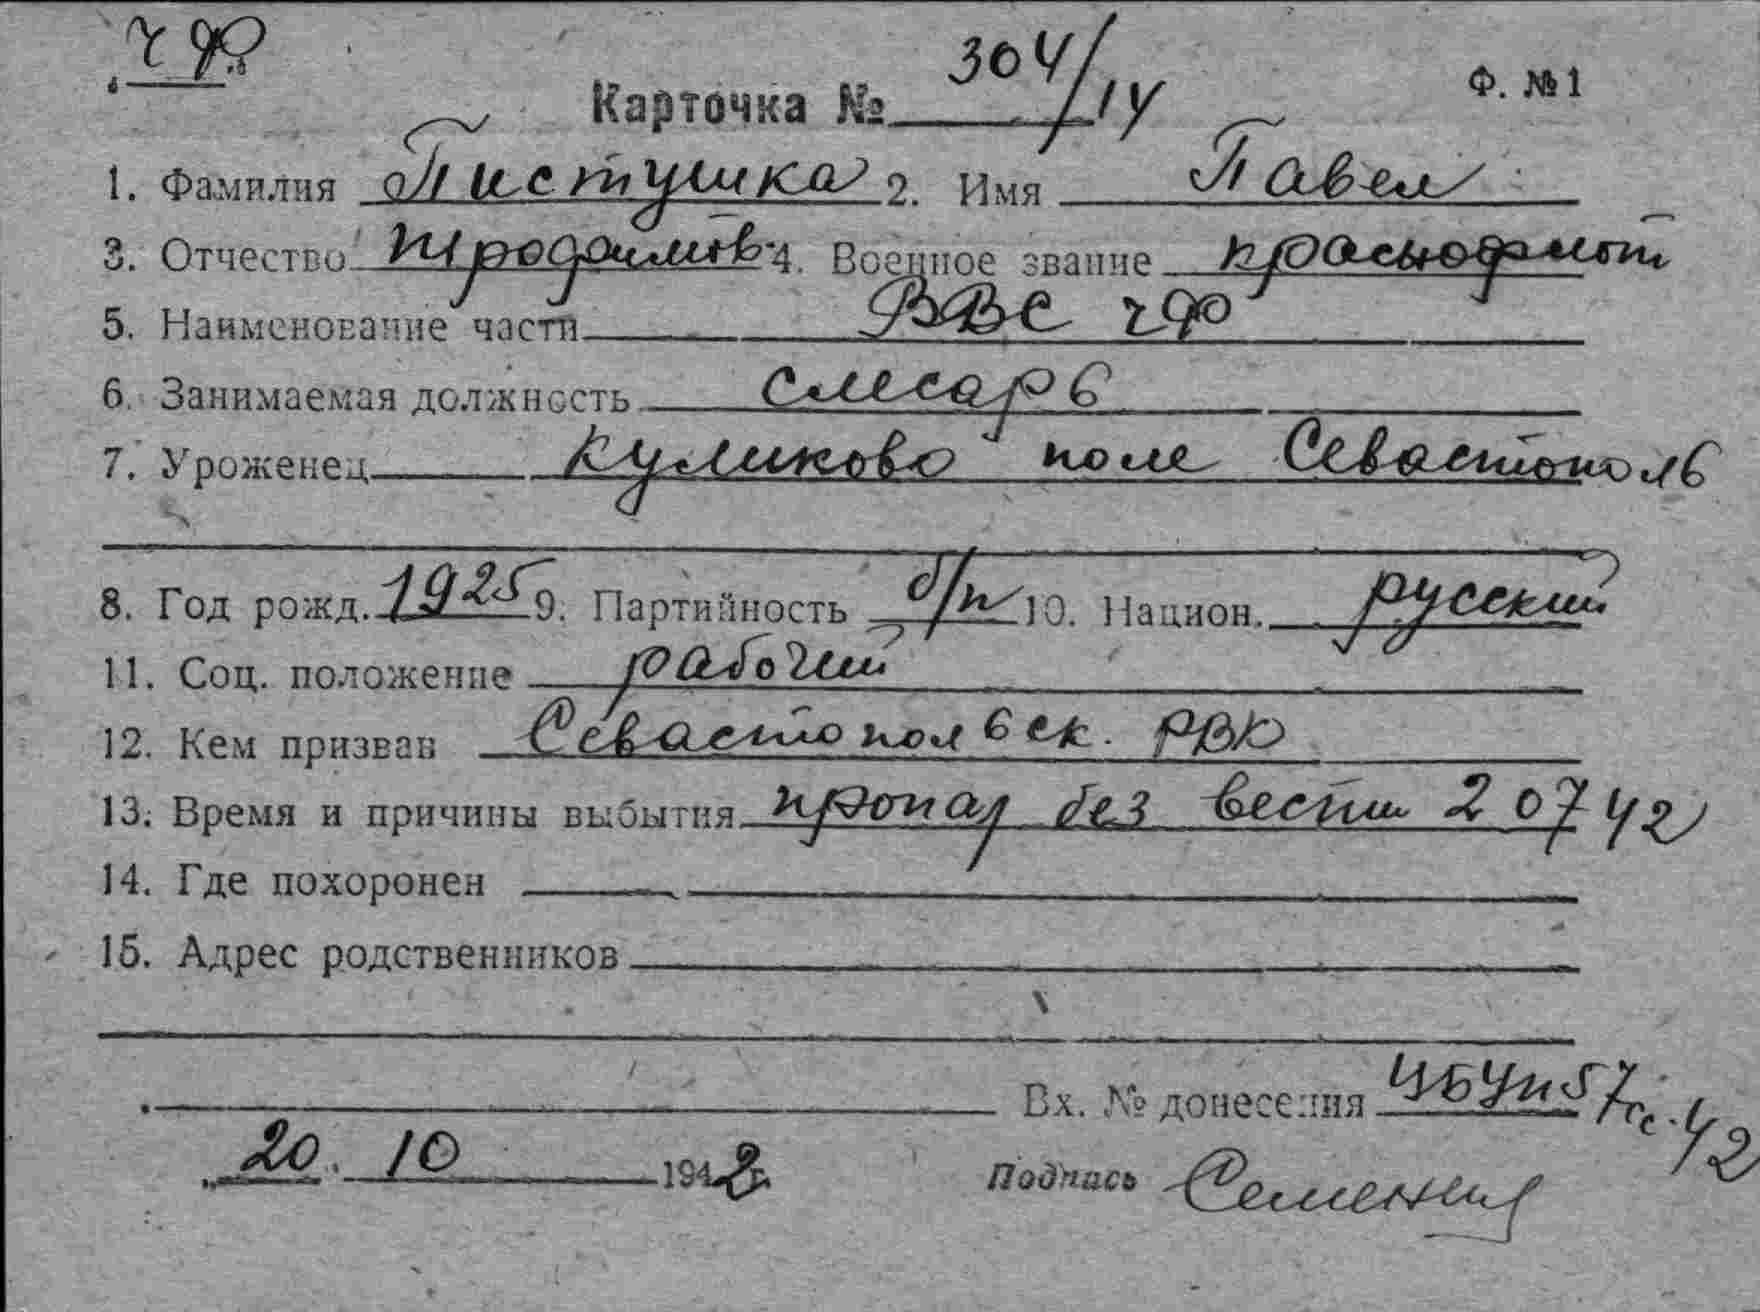 ЧФ
Карточка № 304/14 Ф. №1
1. Фамилия Пистушка 2. Имя Павел
3. Отчество Тродоимов 4. Военное звание краснофлот
5. Наименование части ВВС ЧФ
6. Занимаемая должность слесарь
7. Уроженец Куликово поле Севастополь
8. Год рожд. 1925 9. Партийность б/п 10. Национ. русский
11. Соц. положение рабочий
12. Кем призван Севастопольск. РВК
13. Время и причины выбытия пропал без вести 2 07 42
14. Где похоронен
15. Адрес родственников
Вх. № донесения 57сс. 42
20. 10 1942г. Подпись